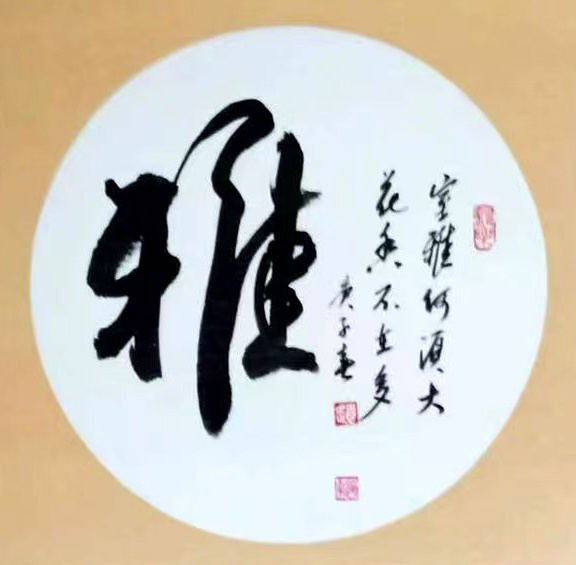 雅
室雅何须大
花香不在多
庚子春